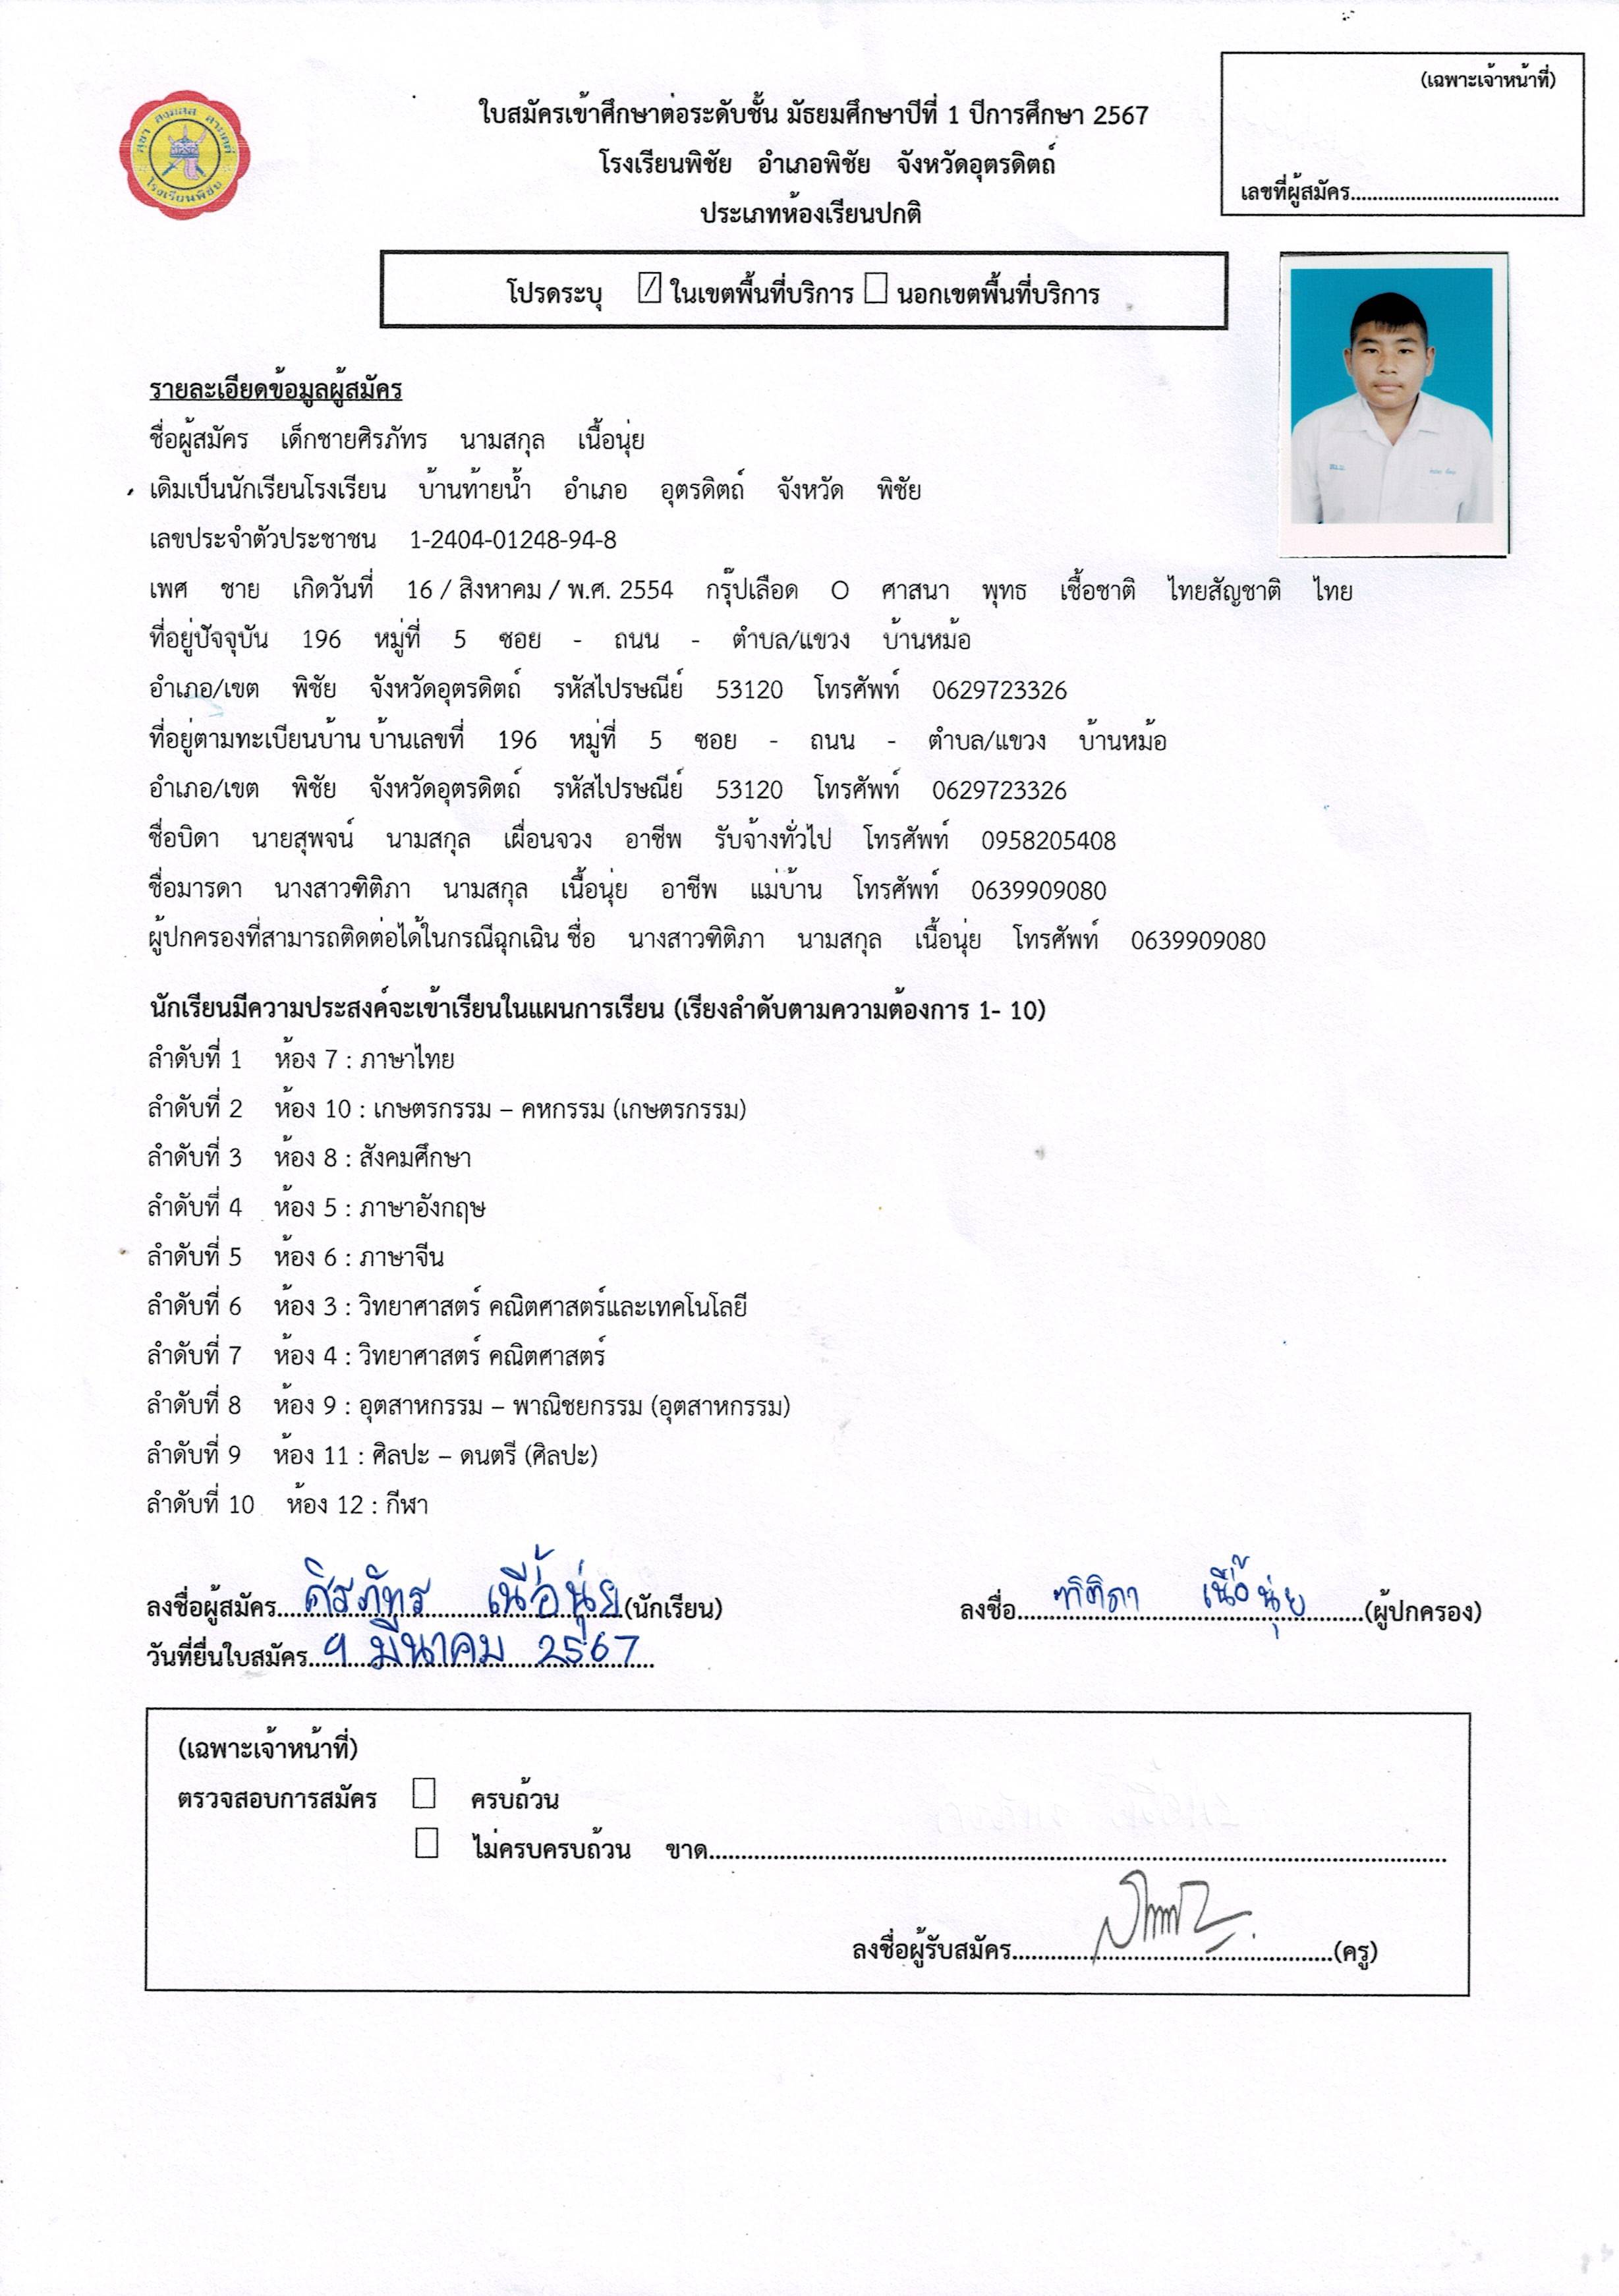 (เฉพาะเจ้าหน้าที่)
เลขที่ผู้สมัคร
ใบสมัครเข้าศึกษาต่อระดับชั้น มัธยมศึกษาปีที่ 1 ปีการศึกษา 2567
โรงเรียนพิชัย อำเภอพิชัย จังหวัดอุตรดิตถ์
ประเภทห้องเรียนปกติ
โรงเรียนพิชัย
โปรดระบุ ☑ ในเขตพื้นที่บริการ ☐ นอกเขตพื้นที่บริการ
รายละเอียดข้อมูลผู้สมัคร
ชื่อผู้สมัคร เด็กชายศิรภัทร นามสกุล เนื้อนุ่ย
เดิมเป็นนักเรียนโรงเรียน บ้านท้ายน้ำ อำเภอ อุตรดิตถ์ จังหวัด พิชัย
เลขประจำตัวประชาชน 1-2404-01248-94-8
เพศ ชาย เกิดวันที่ 16 / สิงหาคม / พ.ศ. 2554 กรุ๊ปเลือด O ศาสนา พุทธ เชื้อชาติ ไทยสัญชาติ ไทย
ที่อยู่ปัจจุบัน 196 หมู่ที่ 5 ซอย - ถนน - ตำบล/แขวง บ้านหม้อ
อำเภอ/เขต พิชัย จังหวัดอุตรดิตถ์ รหัสไปรษณีย์ 53120 โทรศัพท์ 0629723326
ที่อยู่ตามทะเบียนบ้าน บ้านเลขที่ 196 หมู่ที่ 5 ซอย - ถนน - ตำบล/แขวง บ้านหม้อ
อำเภอ/เขต พิชัย จังหวัดอุตรดิตถ์ รหัสไปรษณีย์ 53120 โทรศัพท์ 0629723326
ชื่อบิดา นายสุพจน์ นามสกุล เผื่อนจวง อาชีพ รับจ้างทั่วไป โทรศัพท์ 0958205408
ชื่อมารดา นางสาวฑิติภา นามสกุล เนื้อนุ่ย อาชีพ แม่บ้าน โทรศัพท์ 0639909080
ผู้ปกครองที่สามารถติดต่อได้ในกรณีฉุกเฉิน ชื่อ นางสาวฑิติภา นามสกุล เนื้อนุ่ย โทรศัพท์ 0639909080
นักเรียนมีความประสงค์จะเข้าเรียนในแผนการเรียน (เรียงลำดับตามความต้องการ 1- 10)
ลำดับที่ 1 ห้อง 7 : ภาษาไทย
ลำดับที่ 2 ห้อง 10 : เกษตรกรรม – คหกรรม (เกษตรกรรม)
ลำดับที่ 3 ห้อง 8 : สังคมศึกษา
ลำดับที่ 4 ห้อง 5 : ภาษาอังกฤษ
ลำดับที่ 5 ห้อง 6 : ภาษาจีน
ลำดับที่ 6 ห้อง 3 : วิทยาศาสตร์ คณิตศาสตร์และเทคโนโลยี
ลำดับที่ 7 ห้อง 4 : วิทยาศาสตร์ คณิตศาสตร์
ลำดับที่ 8 ห้อง 9 : อุตสาหกรรม – พาณิชยกรรม (อุตสาหกรรม)
ลำดับที่ 9 ห้อง 11 : ศิลปะ – ดนตรี (ศิลปะ)
ลำดับที่ 10 ห้อง 12 : กีฬา
ลงชื่อผู้สมัคร ศิรภัทร เนื้อนุ่ย (นักเรียน) ลงชื่อ ฑิติภา เนื้อนุ่ย (ผู้ปกครอง)
วันที่ยื่นใบสมัคร 9 มีนาคม 2567
(เฉพาะเจ้าหน้าที่)
ตรวจสอบการสมัคร ☐ ครบถ้วน
☐ ไม่ครบครบถ้วน ขาด
ลงชื่อผู้รับสมัคร (ครู)